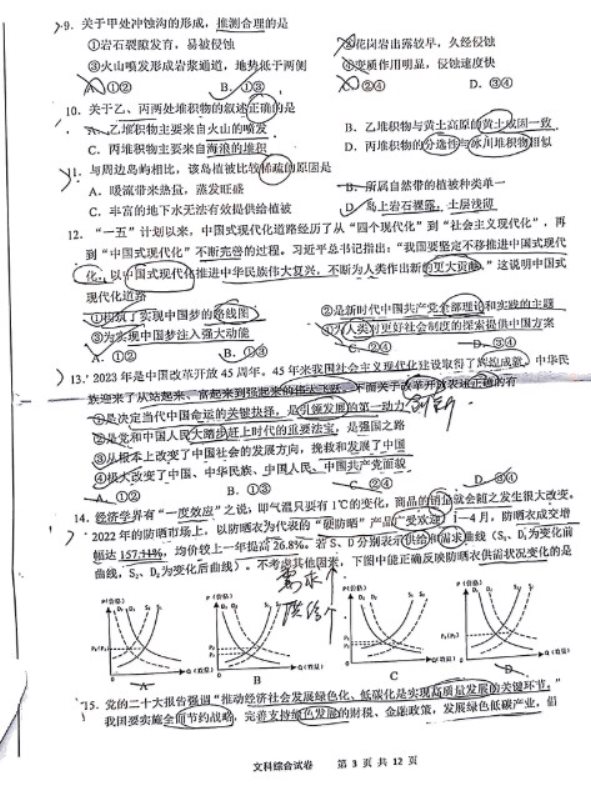 9. 关于甲处冲蚀沟的形成，推测合理的是
①岩石裂隙发育，易被侵蚀 ②花岗岩出露较早，久经侵蚀
③火山喷发形成岩浆通道，地势低于两侧 ④变质作用明显，侵蚀速度快
A. ①② B. ①③ C. ②④ D. ③④
10. 关于乙、丙两处堆积物的叙述正确的是
A. 乙堆积物主要来自火山的喷发 B. 乙堆积物与黄土高原的黄土成因一致
C. 丙堆积物主要来自海浪的堆积 D. 丙堆积物的分选性与冰川堆积物相似
11. 与周边岛屿相比，该岛植被比较稀疏的原因是
A. 暖流带来热量，蒸发旺盛 B. 所属自然带的植被种类单一
C. 丰富的地下水无法有效提供给植被 D. 岛上岩石裸露，土层浅薄
12. “一五”计划以来，中国式现代化道路经历了从“四个现代化”到“社会主义现代化”，再
到“中国式现代化”不断完善的过程。习近平总书记指出：“我国要坚定不移推进中国式现代
化，以中国式现代化推进中华民族伟大复兴，不断为人类作出新的更大贡献。”这说明中国式
现代化道路
①校筑了实现中国梦的路线图 ②是新时代中国共产党全部理论和实践的主题
③为实现中国梦注入强大动能 ④为人类对更好社会制度的探索提供中国方案
A. ①② B. ①③ C. ②④ D. ③④
13. 2023 年是中国改革开放 45 周年。45 年来我国社会主义现代化建设取得了辉煌成就，中华民
族迎来了从站起来、富起来到强起来的伟大飞跃。下面关于改革开放表述正确的有
①是决定当代中国命运的关键抉择，是引领发展的第一动力 创新
②是党和中国人民大踏步赶上时代的重要法宝，是强国之路
③从根本上改变了中国社会的发展方向，挽救和发展了中国
④极大改变了中国、中华民族、中国人民、中国共产党面貌
A. ①② B. ①③ C. ②④ D. ③④
14. 经济学界有“一度效应”之说：即气温只要有 1℃的变化，商品的销量就会随之发生很大改变。
2022 年的防晒市场上，以防晒衣为代表的“硬防晒”产品广受欢迎，1—4 月，防晒衣成交增
幅达 157.11%，均价较上一年提高 26.8%。若 S、D 分别表示供给和需求曲线（S₁、D₁为变化前
曲线，S₂、D₂为变化后曲线）。不考虑其他因素，下图中能正确反映防晒衣供需状况变化的是
需求↑
供给↑
P（价格） P（价格） P（价格） P（价格）
Q（数量） Q（数量） Q（数量） Q（数量）
A B C D
15. 党的二十大报告强调“推动经济社会发展绿色化、低碳化是实现高质量发展的关键环节。”
我国要实施全面节约战略，完善支持绿色发展的财税、金融政策，发展绿色低碳产业，倡
文科综合试卷 第 3 页 共 12 页